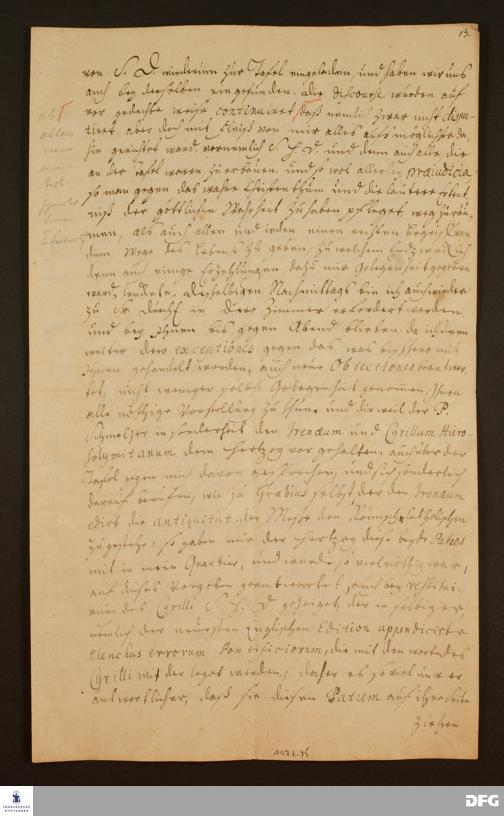 13.
von S. D. wiederum zur Tafel eingeladen, und haben wir uns
auch bey derselben eingefunden. Die Discourse wurden auf
vor gedachte weise continuiret, daß nemlich zwar nicht dispu-
tiret, aber doch mit Fleiß von mir alles aufs möglichste da-
hin gerichtet ward, vornemlich S. H. D. und denn auch alle, die
an der Tafel waren, zu erbauen, und so wol alle praejudicia,
so man gegen das wahre Christenthum und die lautere Erkent-
niß der göttlichen Wahrheit zu haben pfleget, weg zu räu-
men, als auch allen und ieden einen rechten begriff von
dem Wege des Lebens zu geben; zu welchem Endzweck ich
denn auch einige Erzehlungen, dazu mir Gelegenheit gegeben
ward, Desselbigen Nachmittags bin ich auch wieder
zu Dero Zimmer erfordert worden,
und bey Ihnen bis gegen Abend blieben, da ich
weiter dero exceptiones gegen das, was bißhero mit
Ihnen gehandelt worden, auch neue Objectiones beantwor-
tet, nicht weniger selbst Gelegenheit genommen, Ihnen
alle nöthige Vorstellung zu thun. und dieweil der P.
Schmeltzer insonderheit den Irenaeum und Cyrillum Hiero-
solymitanum dem Hertzog vorgehalten, auch über der
Tafel gegen mich davon gesprochen, und sich sonderlich
darauf beruffen, wie ja Grabius selbst, der den Irenaeum
edirt, die antiquität der Messe den Römisch-Catholischen
zugestehe: so gaben mir der Hertzog diese beyde Patres
mit in mein Quartier, und wurde, so viel nöthig war,
auf dieses Vorgeben geantwortet, auch bey restitui-
rung des Cyrilli S. H. D. gezeiget, der in selbiger
nemlich der neuesten Englischen Edition appendicirte
elenchus errorum Pontificiorum, die mit den worten des
Cyrilli wiederleget werden; daher es so viel unver-
antwortlicher, daß sie diesen Patrem auf ihre Seite
ziehen
A 173 : 95
FRANCKESCHE
STIFTUNGEN
DFG